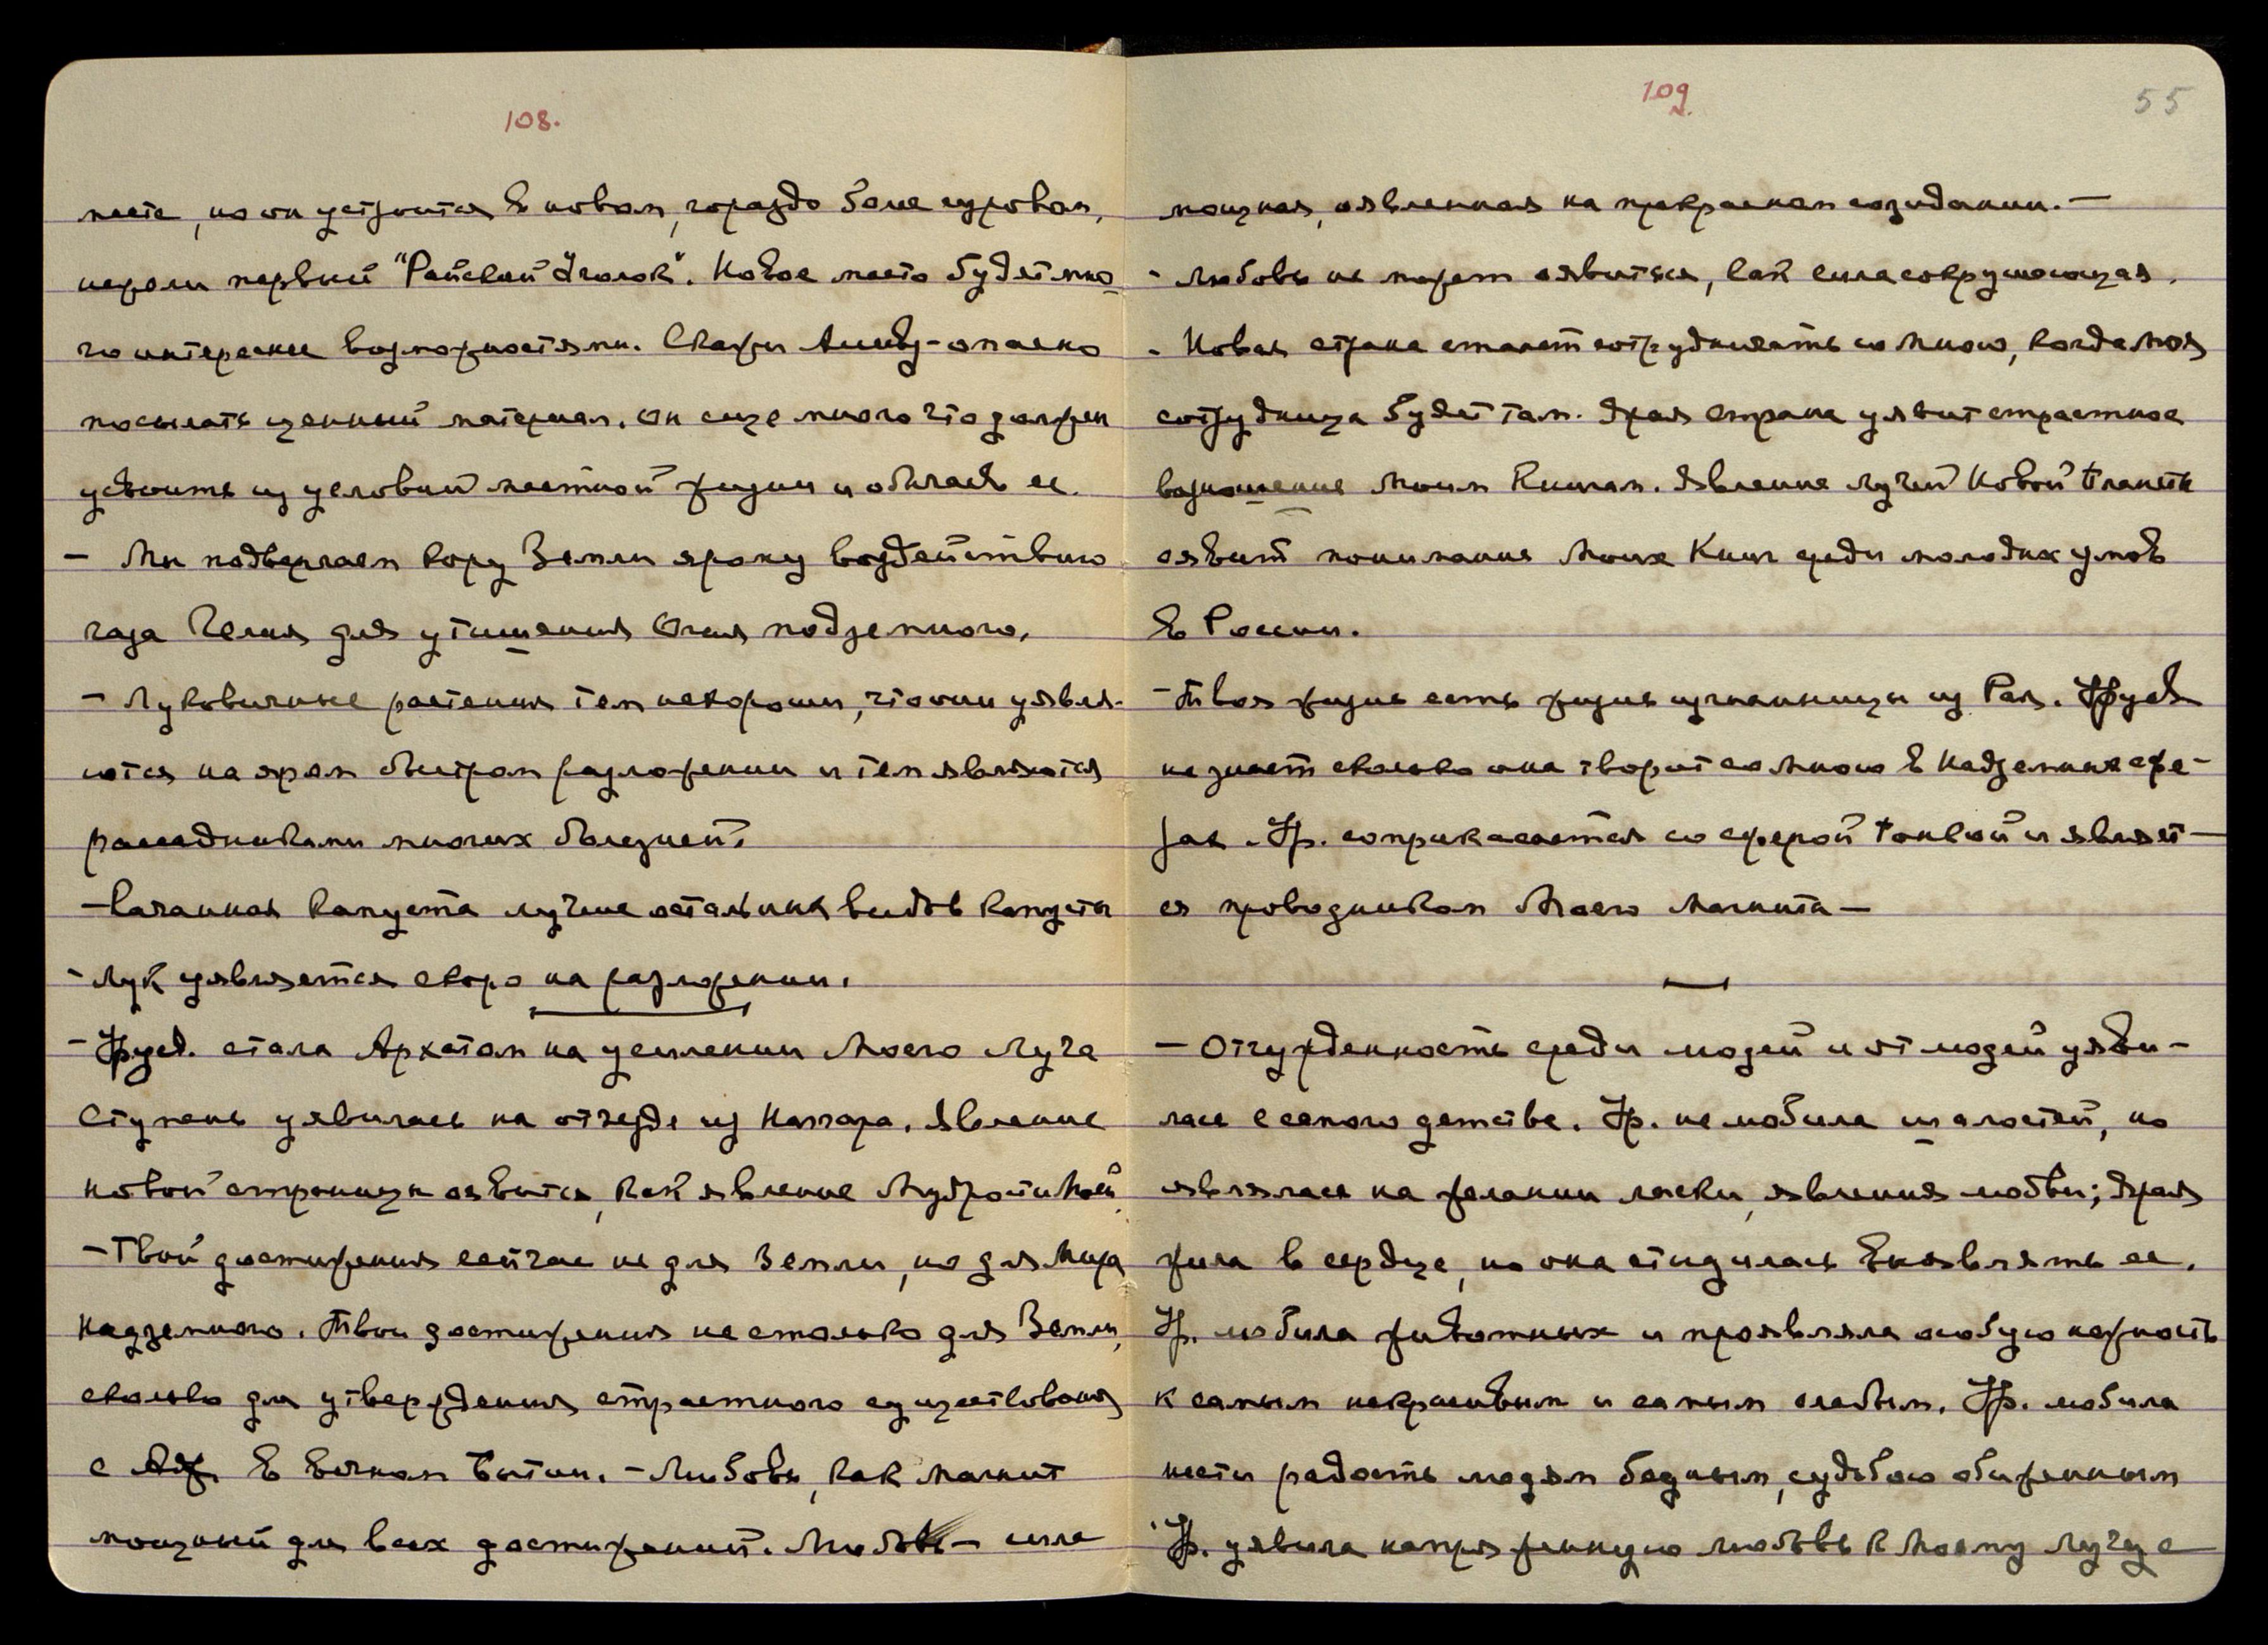 108.
месте, но он устроится в новом, гораздо более суровом,
нежели первый "Райский Уголок". Новое место будет мно-
го интереснее возможностями. Скажи Аинву - опасно
посылать ценный материал. Он еще много что должен
усвоить из условий местной жизни и обычаев ее.
— Мы подвергаем кору Земли яркому воздействию
газа Гелия для утишения Огня подземного.
— Луковичные растения тем нехороши, что они уявля-
ются на яром быстром разложении и тем являются
рассадниками многих болезней.
— Качанная капуста лучше остальных видов капусты
- Лук уявляется скоро на разложении.
- Урус. стала Архатом на усилении Моего Луча
Ступень уявилась на отъезде из Наггара. Явление
новой страницы оявится, как явление Мудрости Моей.
— Твои достижения сейчас не для Земли, но для Мира
Надземного. Твои достижения не столько для Земли,
сколько для утверждения страстного существования
с в Вечном Бытии. — Любовь, как магнит
мощный для всех достижений. Любовь — сила
109.
55
мощная, оявленная на прекрасном созидании. —
- Любовь не может оявиться, как сила сокрушающая.
- Новая страна станет сотрудничать со Мною, когда Моя
сотрудница будет там. Ярая страна уявит страстное
возношение Моим Книгам. Явление лучей Новой Планеты
оявит понимание Моих Книг среди молодых умов
в России.
- Твоя жизнь есть жизнь изгнанницы из Рая.
не знает сколько она творит со Мною в Надземных сфе-
рах. Ур. соприкасается со сферой Тонкой и являет-
ся проводником Моего Магнита —
— Отчужденность среди людей и от людей уяви-
лась с самого детства. Ур. не любила шалостей, но
являлась на желании ласки, явления любви; ярая
жила в сердце, но она стыдилась выявлять ее.
Ур. любила животных и проявляла особую нежность
к самым некрасивым и самым слабым. Ур. любила
нести радость людям бедным, судьбою обиженным
Ур. уявила напряженную любовь к Моему Лучу с